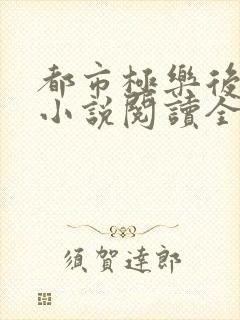 都市極樂後
小說閱讀全
須賀達郎